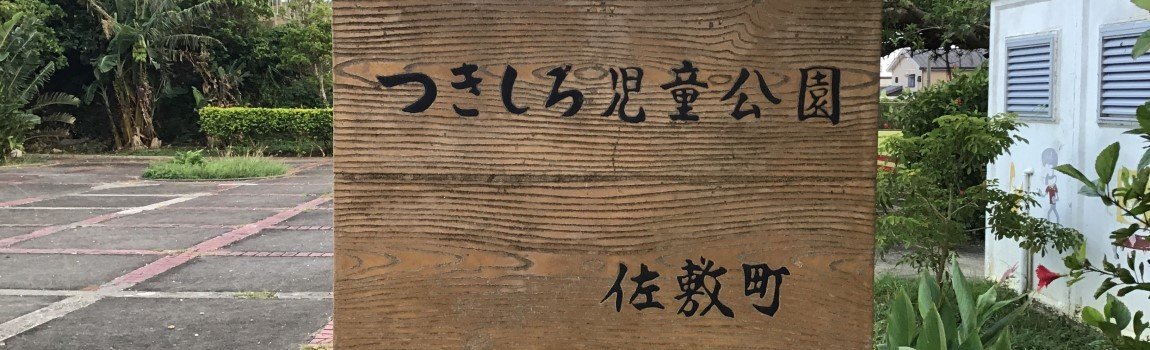 つきしろ児童公園
佐敷町